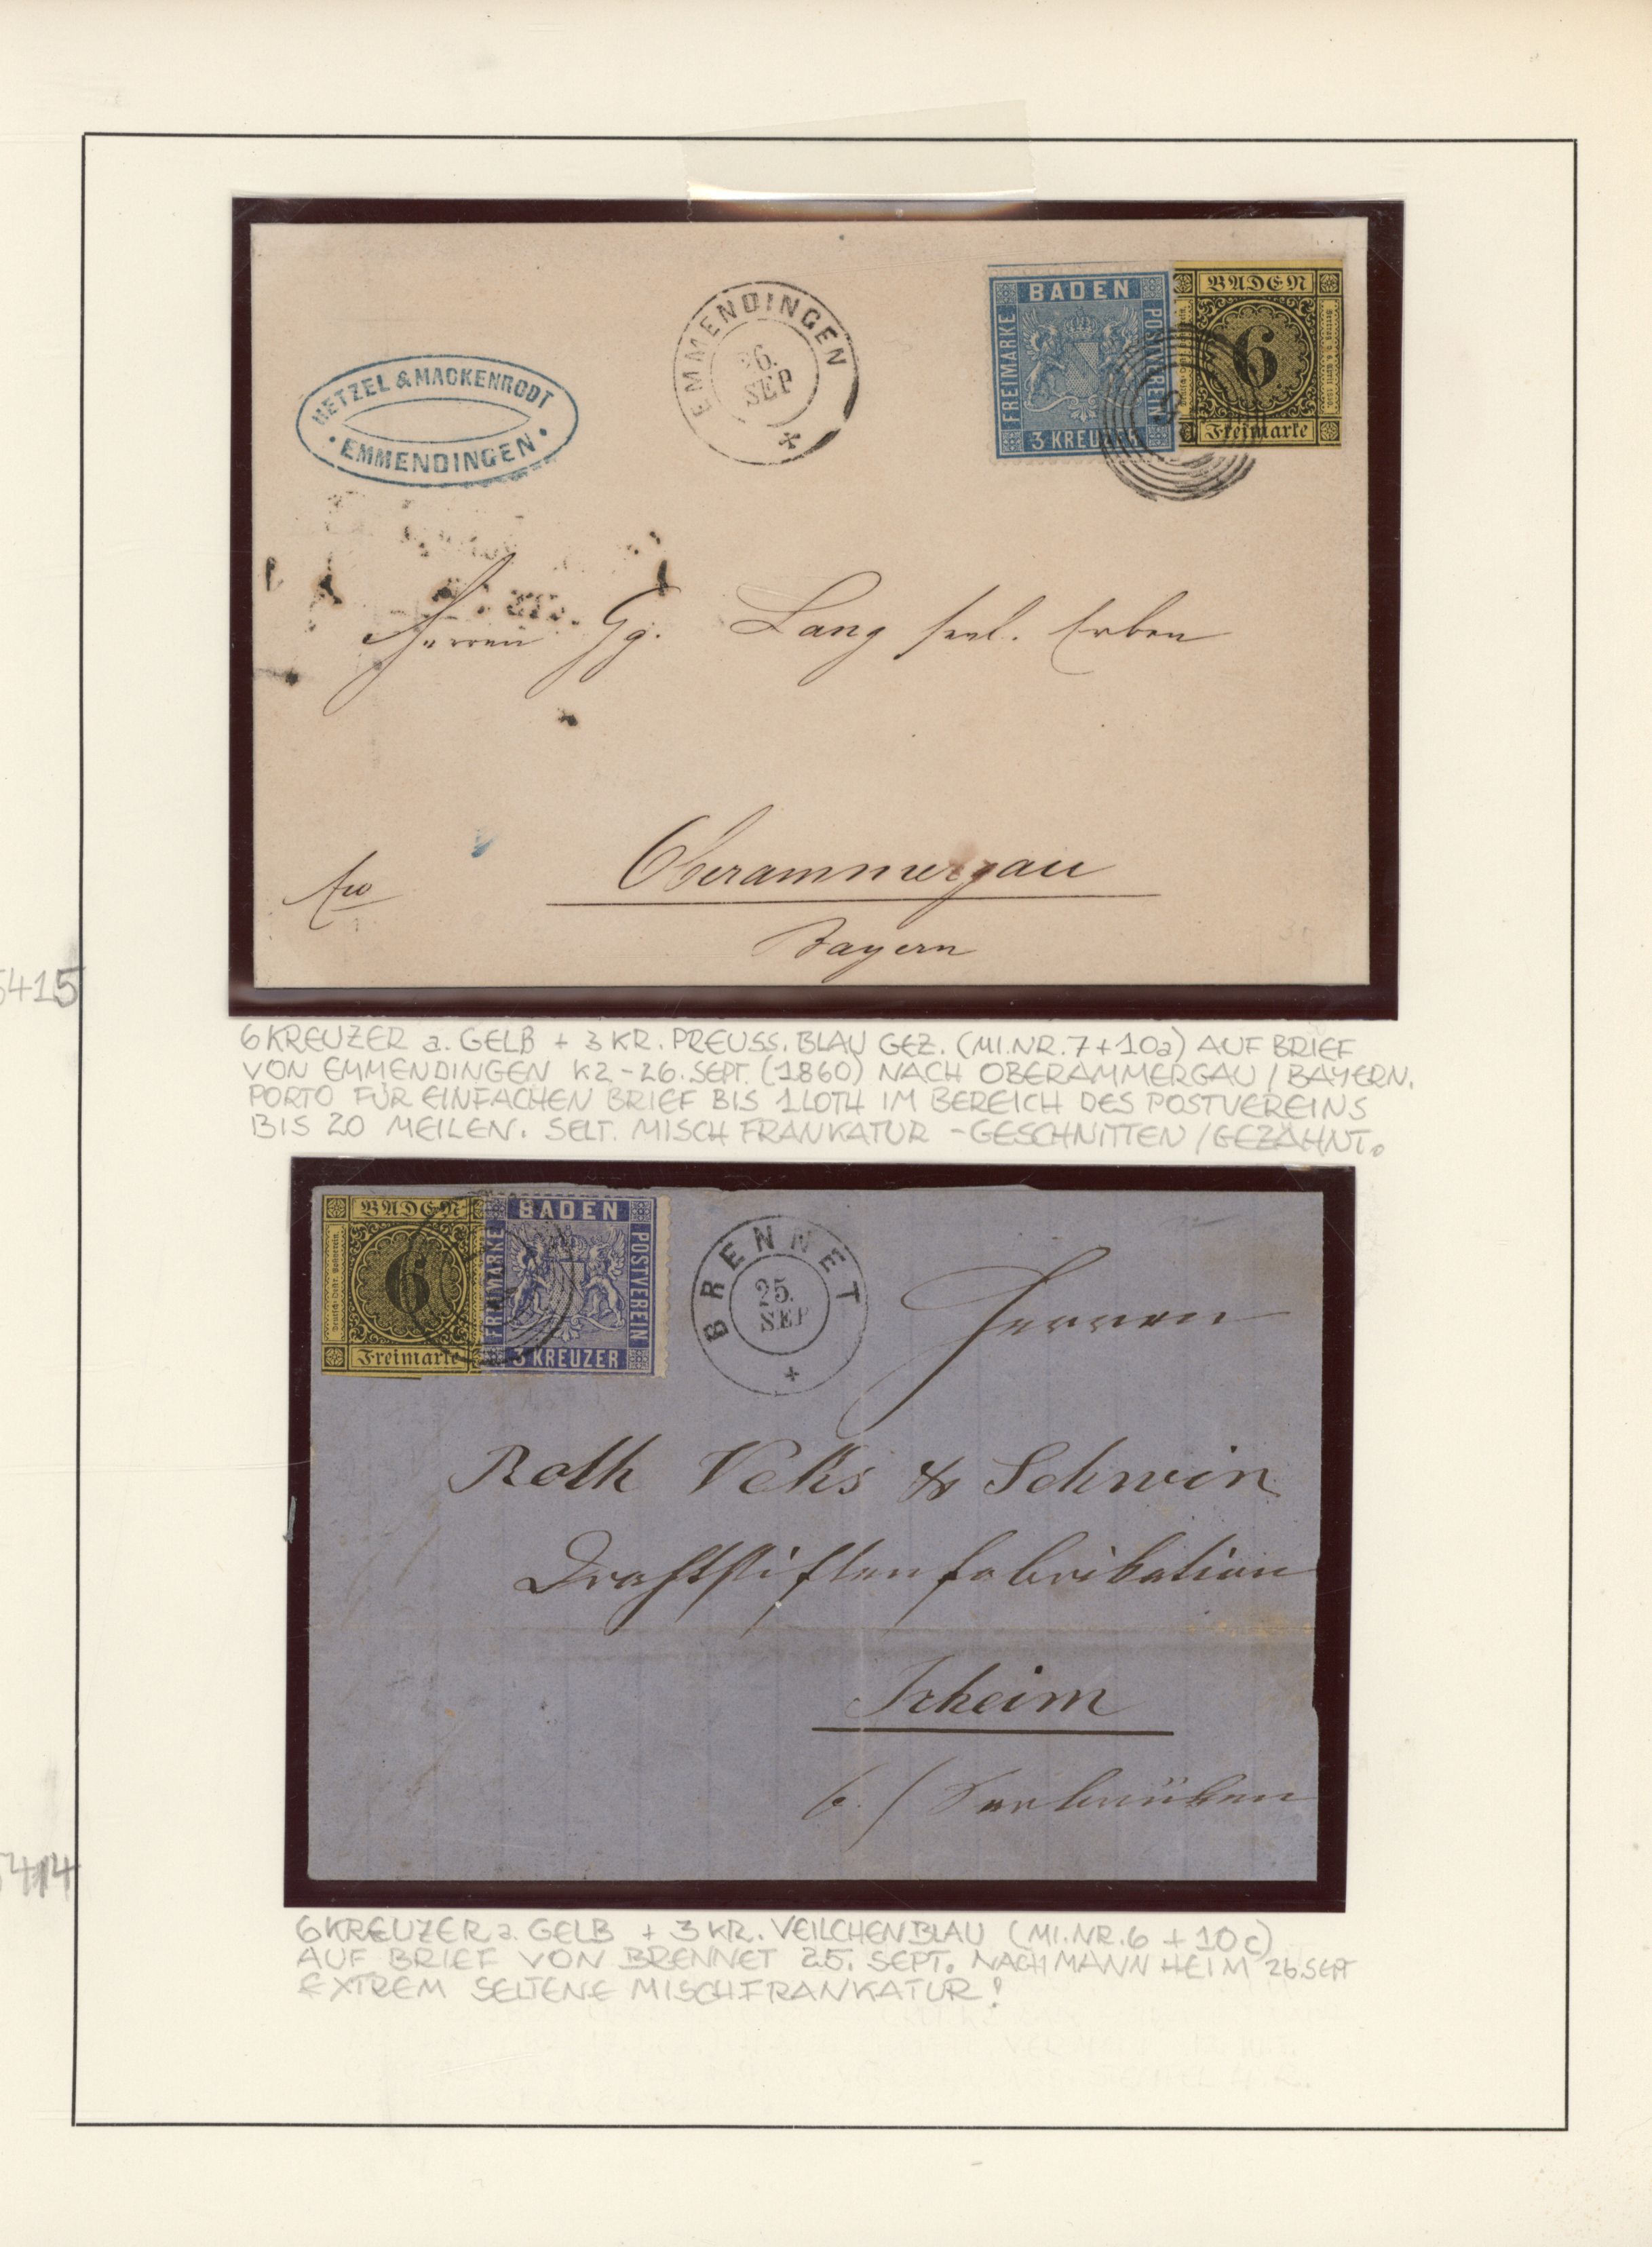 HETZEL & MACKENRODT
EMMENDINGEN
EMMENDINGEN
26.
SEP
BADEN
FREIMARKE
POSTVEREIN
3 KREUZER
BADEN
6
Freimarke
Herren Gg. Lang seel. Erben
Oberammergau
Bayern
fco
5415
6 KREUZER a. GELB + 3 KR. PREUSS. BLAU GEZ. (MI.NR. 7 + 10a) AUF BRIEF
VON EMMENDINGEN K2 - 26. SEPT. (1860) NACH OBERAMMERGAU / BAYERN.
PORTO FÜR EINFACHEN BRIEF BIS 1 LOTH IM BEREICH DES POSTVEREINS
BIS 20 MEILEN. SELT. MISCHFRANKATUR - GESCHNITTEN / GEZÄHNT.
BADEN
6
Freimarke
BADEN
FREIMARKE
POSTVEREIN
3 KREUZER
BRENNET
25.
SEP
Herren
Roth Veks & Schwin
Drahtstiftenfabrikation
Irheim
b. / Saarbrücken
5414
6 KREUZER a. GELB + 3 KR. VEILCHENBLAU (MI.NR. 6 + 10c)
AUF BRIEF VON BRENNET 25. SEPT. NACH MANNHEIM 26. SEPT
EXTREM SELTENE MISCHFRANKATUR!